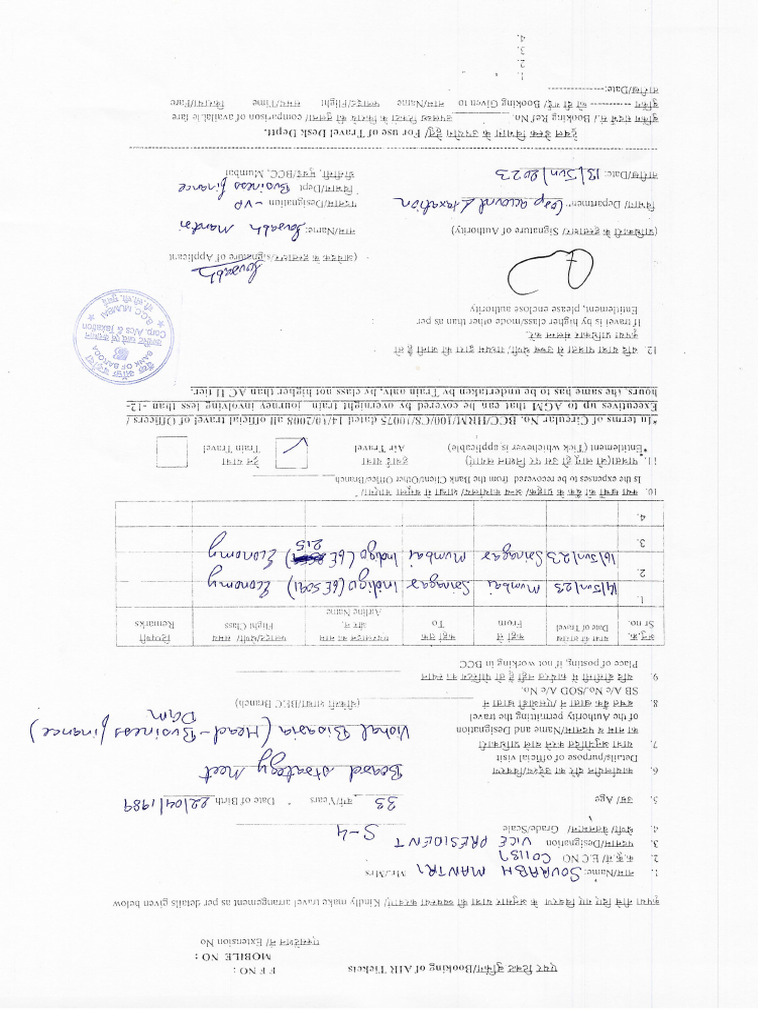 एयर टिकट बुकिंग/Booking of AIR Tickets
F F NO :
MOBILE NO :
एक्सटेंशन नं/ Extension No
कृपया नीचे दिए गए विवरण के अनुसार यात्रा की व्यवस्था करवाएं/ Kindly make travel arrangement as per details given below
1. नाम/Name: SOURABH MANTRI Mr./Mrs
2. क.कू.सं/E.C NO C01187
3. पदनाम/Designation VICE PRESIDENT
4. श्रेणी/ वेतनमान/ Grade/Scale S-4
5. उम्र/ Age 33 वर्ष/Years Date of Birth 22/04/1989
6. कार्यालयीन दौरे का उद्देश्य/विवरण
Details/purpose of official visit Board strategy Meet
7. यात्रा अनुमोदित करने वाले प्राधिकारी
का नाम व पदनाम/Name and Designation
of the Authority permitting the travel Vishal Biraria (Head-Business finance)
DGM
8. बचत बैंक खाता नं/एसओडी खाता नं
SB A/c No./SOD A/c No. (बीसीसी शाखा/BCC Branch)
9. यदि बीसीसी में कार्यरत नहीं है तो पोस्टिंग का स्थान
Place of posting, if not working in BCC
अनु.क्र. यात्रा की तारीख कहाँ से कहाँ तक एयरलाइन का नाम फ्लाइट/श्रेणी/ समय टिप्पणी
Sr no. Date of Travel From To और नं. Airline Name Flight Class Remarks
1. 14/Jun/23 Mumbai Srinagar Indigo (6E 5091) Economy
2. 16/Jun/23 Srinagar Mumbai Indigo (6E 215) Economy
3.
4.
10. क्या खर्चे को बैंक के ग्राहक/ अन्य कार्यालय/ शाखा से वसूला जाएगा/
Is the expenses to be recovered from the Bank Client/Other Office/Branch
11. पात्रता(जो लागू हो उस पर निशान लगाएं) हवाई यात्रा ट्रेन यात्रा
*Entitlement (Tick whichever is applicable) Air Travel ✓ Train Travel
*In terms of Circular No. BCC/HRM/100/CS/10075 dated 14/10/2008 all official travel of Officers /
Executives up to AGM that can be covered by overnight train journey involving less than -12-
hours, the same has to be undertaken by Train only, by class not higher than AC II tier.
12. यदि यात्रा पात्रता से उच्च श्रेणी/ माध्यम द्वारा की जानी है तो
कृपया प्राधिकार संलग्न करें.
If travel is by higher class/mode other than as per
Entitlement, please enclose authority
बैंक ऑफ़ बड़ौदा
BANK OF BARODA
Corp. A/cs & Taxation
B.C.C. MUMBAI
Sourabh
(आवेदक के हस्ताक्षर/signature of Applicant
(प्राधिकारी के हस्ताक्षर/ Signature of Authority)
नाम/Name: Sourabh Mantri
विभाग/ Department: Corp account & taxation
पदनाम/Designation - VP
विभाग/Dept Business finance
तारीख/Date: 13/Jun/2023
बीसीसी, मुंबई/BCC, Mumbai
ट्रेवल डेस्क विभाग के उपयोग हेतु/ For use of Travel Desk Deptt.
बुकिंग संदर्भ सं./ Booking Ref No. उपलब्ध टिकट के किराये की तुलना/ comparison of available fare
बुकिंग ---------- को दी गई/ Booking Given to नाम/Name फ्लाइट/Flight समय/Time किराया/Fare
तारीख/Date:
1.
2
3.
4.